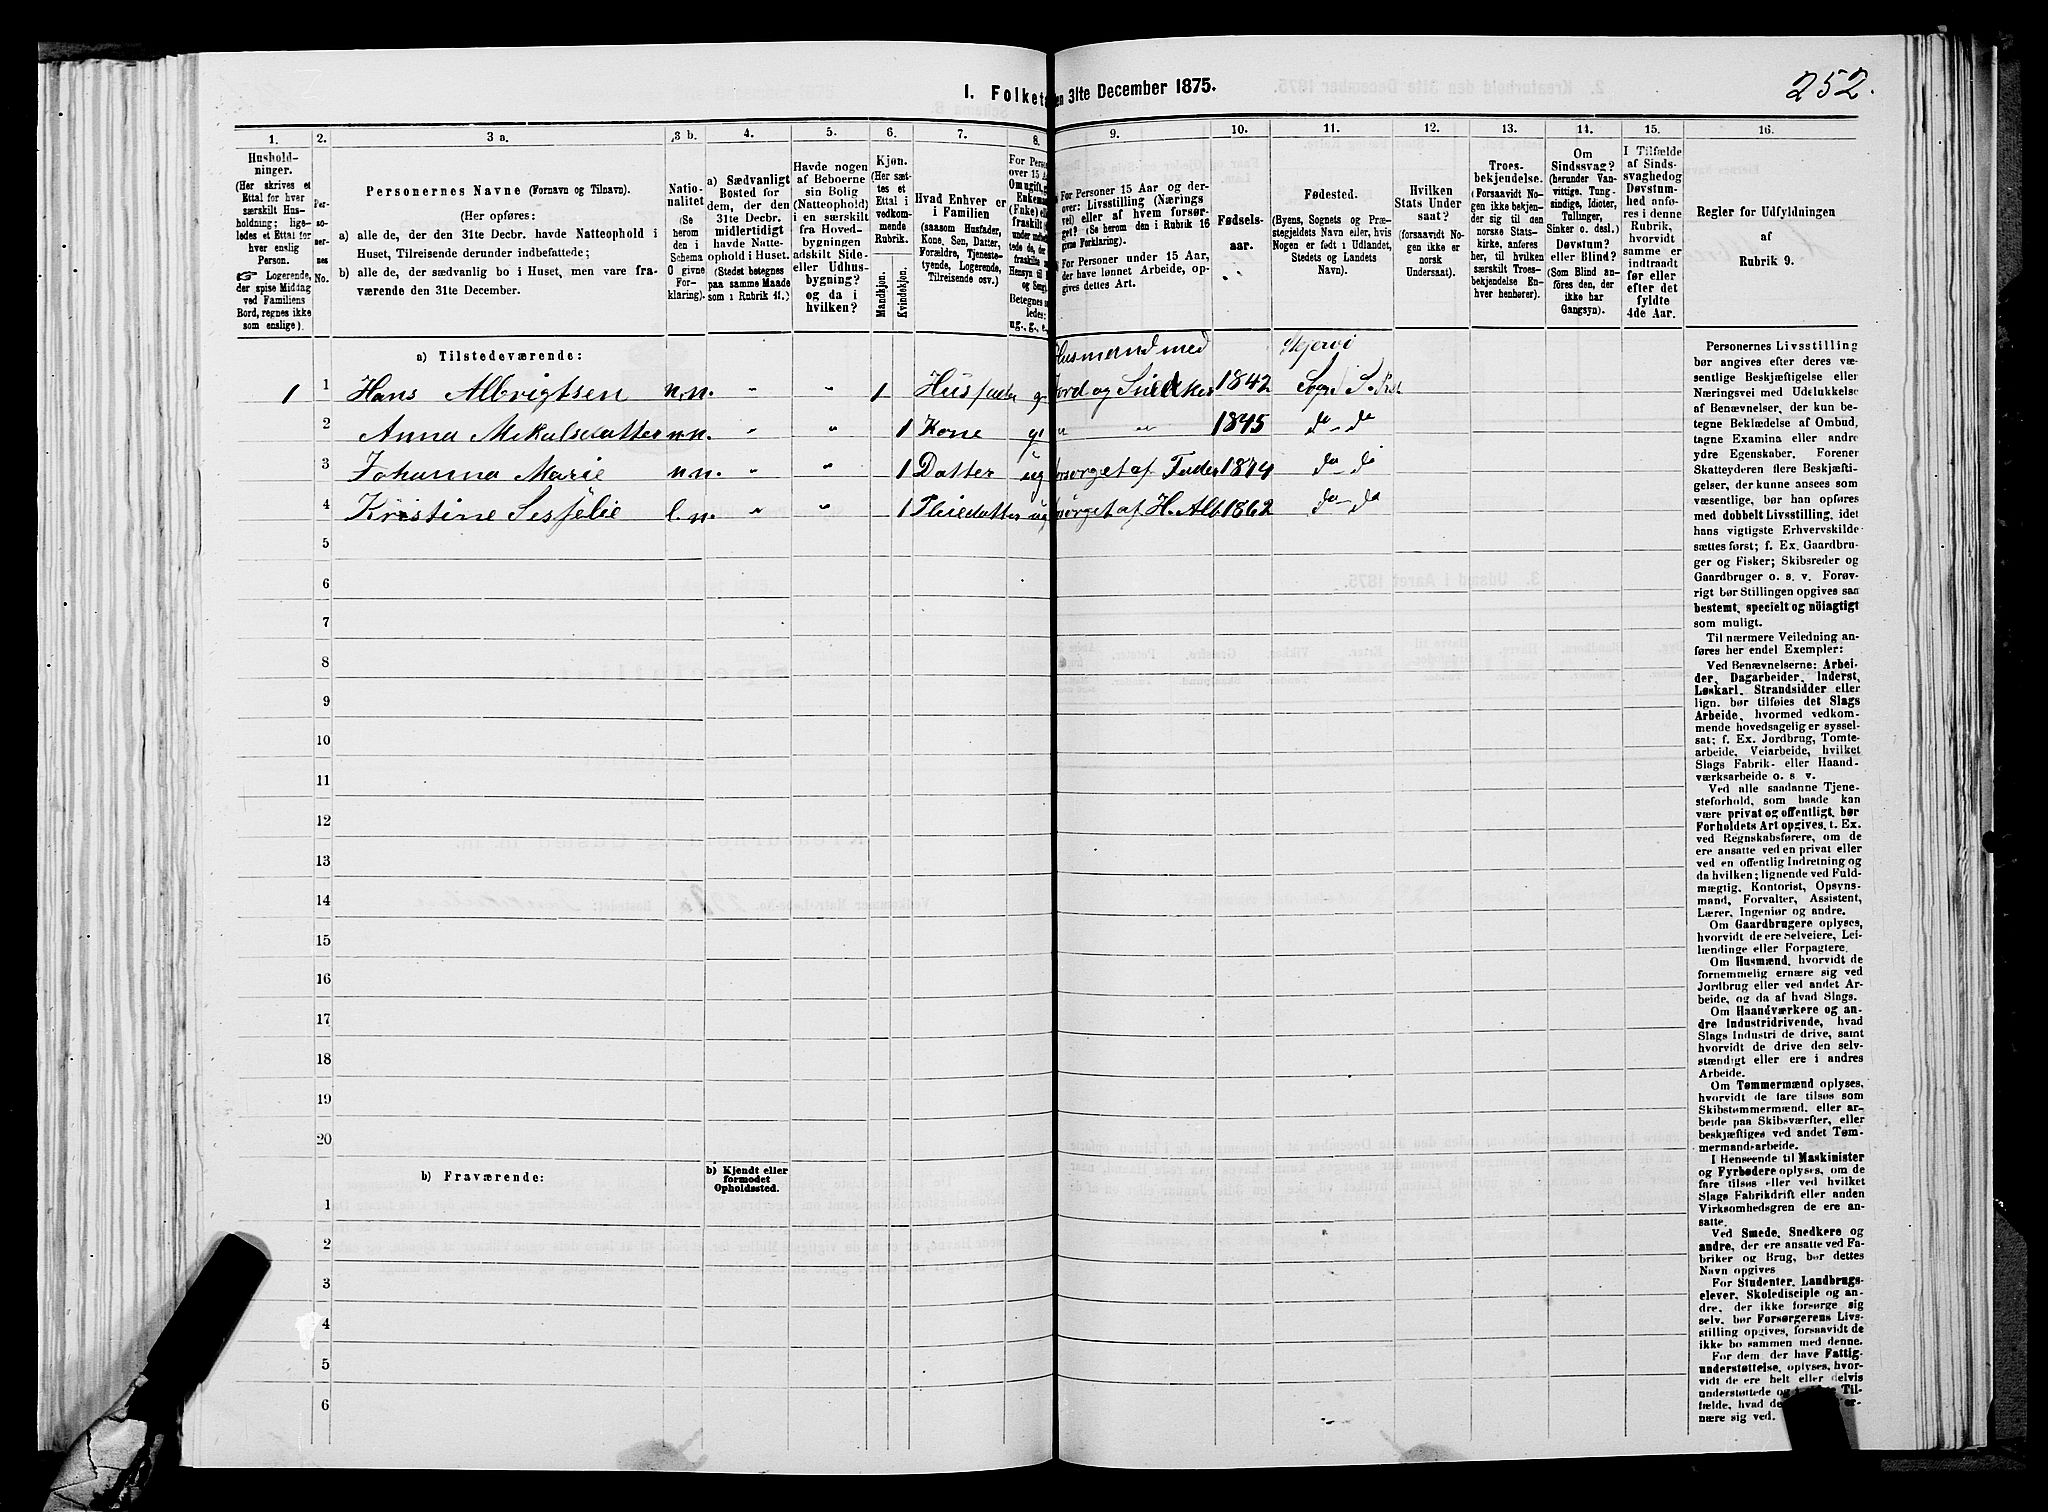 I. Folketæ en 31te December 1875.
252.
1.
2.
3 a.
3 b.
4.
5.
6.
7.
8.
9.
10.
11.
12.
13.
14.
15.
16.
Hushold-
ninger.
(Her skrives et
Ettal for hver
særskilt Hus-
holdning; lige-
ledes et Ettal for
hver enslig
Person.
☞ Logerende,
der spise Middag
ved Familiens
Bord, regnes ikke
som enslige).
Per-
so-
ner-
nes
No.
Personernes Navne (Fornavn og Tilnavn).
(Her opføres:
a) alle de, der den 31te Decbr. havde Natteophold i
Huset, Tilreisende derunder indbefattede;
b) alle de, der sædvanlig bo i Huset, men vare fra-
værende den 31te December.
Natio-
nalitet
(Se
herom
den i
Schema
O givne
For-
klaring).
a) Sædvanligt
Bosted for
dem, der den
31te Decbr.
midlertidigt
havde Natte-
ophold i Huset.
(Stedet betegnes
paa samme Maade
som i Rubrik 11.)
Havde nogen
af Beboerne
sin Bolig
(Natteophold)
i en særskilt
fra Hoved-
bygningen
adskilt Side-
eller Udhus-
bygning?
og da i
hvilken?
Kjøn.
(Her sæt-
tes et
Ettal i
vedkom-
mende
Rubrik.
Mandkjøn.
Kvindekjøn.
Hvad Enhver er
i Familien
(saasom Husfader,
Kone, Søn, Datter,
Forældre, Tjeneste-
tyende, Logerende,
Tilreisende osv.)
For Perso
over 15 Aa
Om ugift, g
Enkema
(Fnke) el
fraskilt
Hensyn til
og Seng
Betegnes s
ledes:
ug., g., e.,
For Personer 15 Aar og der-
over: Livsstilling (Nærings
vei) eller af hvem forsør-
get? (Se herom den i Rubrik 16
givne Forklaring).
For Personer under 15 Aar,
der have lønnet Arbeide, op-
gives dettes Art.
Fødsels-
aar.
Fødested.
(Byens, Sognets og Præ-
stegjeldets Navn eller, hvis
Nogen er født i Udlandet,
Stedets og Landets
Navn).
Hvilken
Stats Under
saat?
(forsaavidt No-
gen ikke er
norsk
Undersaat).
Troes-
bekjendelse.
(Forsaavidt No-
gen ikke bekjen-
der sig til den
norske Stats-
kirke, anføres
her, til hvilken
særskilt Troes-
bekjendelse En-
hver henhører).
Om
Sindssvag?
(herunder Van-
vittige. Tung-
sindige, Idioter,
Tullinger,
Sinker o. desl.)
Døvstum?
eller Blind?
(Som Blind an-
føres den, der
ikke har
Gangsyn).
I Tilfælde
af Sinds-
svaghed og
Døvstum-
hed anfø-
res i denne
Rubrik,
hvorvidt
samme er
indtraadt
før eller
efter det
fyldte
4de Aar.
Regler for Udfyldningen
af
Rubrik 9.
a) Tilstedeværende:
Husmand med Skjervø
1 1 Hans Albrigtsen n.n. " " 1 Husfader g Jord og Snedker 1842 Sogn
2 Anna Mikalsdatter n.n. " " 1 Kone g " " 1845 do do
3 Johanna Marie n.n. " " 1 Datter ug orsorget af Fader 1874 do do
4 Kristine l.n. " " 1 Pleiedatter ug sørget af H. Alb. 1862 do do
5
6
7
8
9
10
11
12
13
14
15
16
17
18
19
20
b) Fraværende:
b) Kjendt eller
formodet
Opholdssted.
1
2
3
4
5
6
Personernes Livsstilling
bør angives efter deres væ-
sentlige Beskjæftigelse eller
Næringsvei med Udelukkelse
af Benævnelser, der kun be-
tegne Beklædelse af Ombud,
tagne Examina eller andre
ydre Egenskaber. Forener
Skatteyderen flere Beskjæfti-
gelser, der kunne ansees som
væsentlige, bør han opføres
med dobbelt Livsstilling, idet
hans vigtigste Erhvervskilde
sættes først; f. Ex. Gaardbru-
ger og Fisker; Skibsreder og
Gaardbruger o. s. v. Forøv-
rigt bør Stillingen opgives saa
bestemt, specielt og nøiagtigt
som muligt.
Til nærmere Veiledning an-
føres her endel Exempler:
Ved Benævnelserne: Arbei-
der, Dagarbeider, Inderst,
Løskarl, Strandsidder eller
lign. bør tilføies det Slags
Arbeide, hvormed vedkom-
mende hovedsagelig er syssel-
sat; f. Ex. Jordbrug, Tomte-
arbeide, Veiarbeide, hvilket
Slags Fabrik- eller Haand-
værksarbeide o. s. v.
Ved alle saadanne Tjene-
steforhold, som baade kan
være privat og offentligt, bør
Forholdets Art opgives, t. Ex.
ved Regnskabsførere, om de
ere ansatte ved en privat eller
ved en offentlig Indretning og
da hvilken; lignende ved Fuld-
mægtig, Kontorist, Opsyns-
mand, Forvalter, Assistent,
Lærer, Ingeniør og andre.
Om Gaardbrugere oplyses,
hvorvidt de ere Selveiere, Lei-
lændinge eller Forpagtere.
Om Husmænd, hvorvidt de
fornemmelig ernære sig ved
Jordbrug eller ved andet Ar-
beide, og da af hvad Slags.
Om Haandværkere og an-
dre Industridrivende, hvad
Slags Industri de drive, samt
hvorvidt de drive den selv-
stændigt eller ere i andres
Arbeide.
Om Tømmermænd oplyses,
hvorvidt de fare tilsøs som
Skibstømmermænd, eller ar-
beide paa Skibsværfter, eller
beskjæftiges ved andet Tøm-
mermandsarbeide.
I Henseende til Maskinister
og Fyrbødere oplyses, om de
fare tilsøs eller ved hvilket
Slags Fabrikdrift eller anden
Virksomhedsgren de ere an-
satte.
Ved Smede, Snedkere og
andre, der ere ansatte ved Fa-
briker og Brug, bør dettes
Navn opgives
For Studenter, Landbrugs-
elever, Skoledisciple og an-
dre, der ikke forsørge sig
selv, bør Forsørgerens Livs-
stilling opgives, forsaavidt de
ikke bo sammen med denne.
For dem, der have Fattig-
understøttelse, oplyses, hvor-
vidt de ere helt eller delvis
understøttede og Til-
fælde, hvad de er-
nære sig ved.